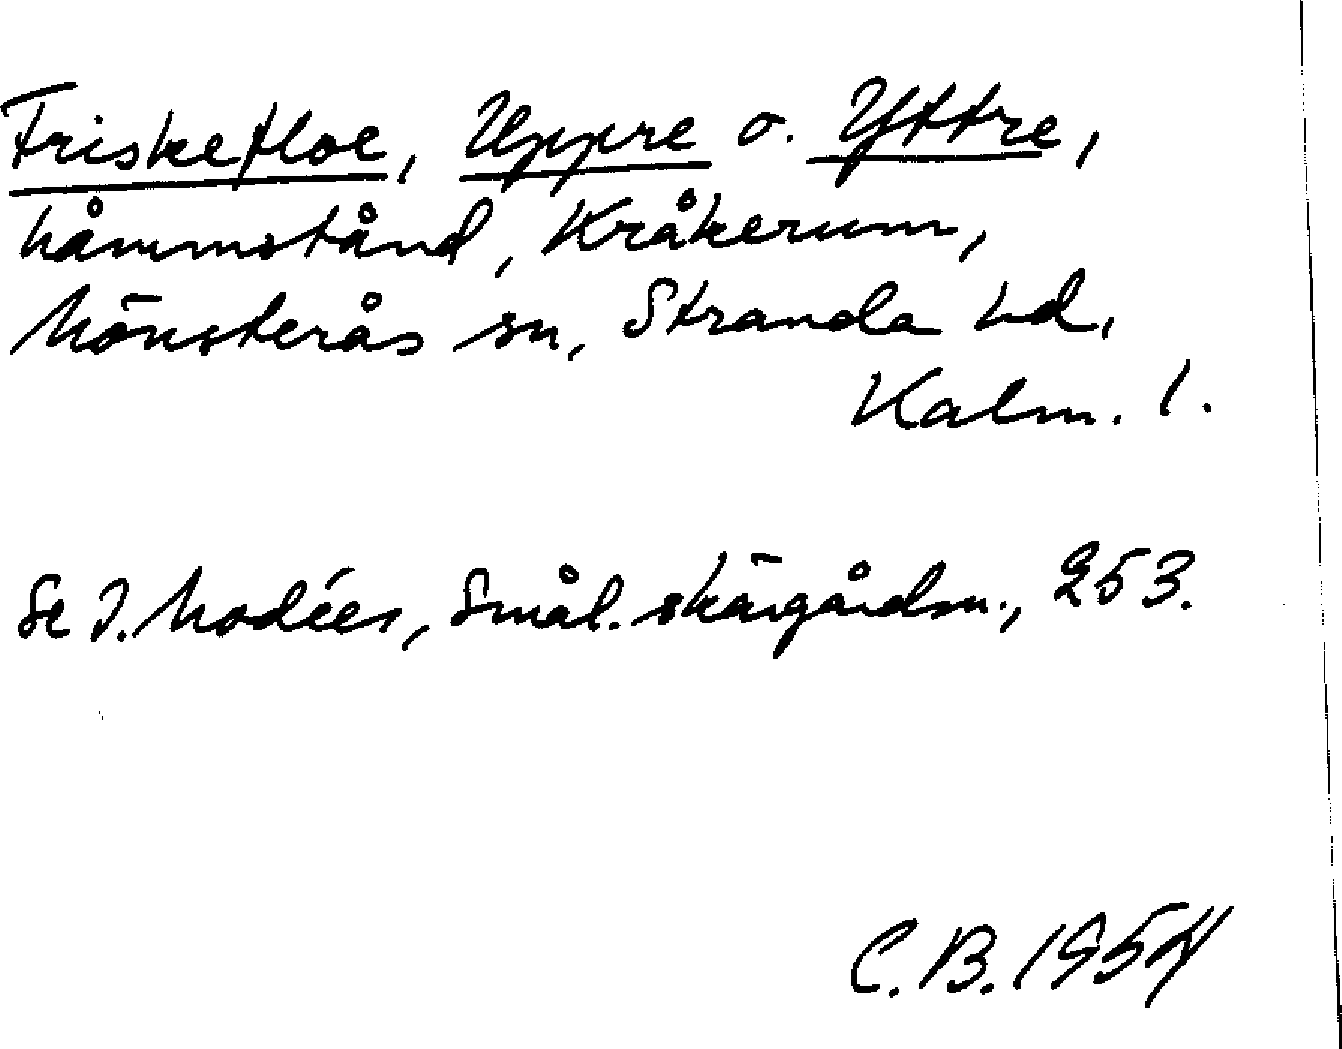 Friskefloe, Uppre o. Yttre,
håmmstånd, Kråkerum,
Mönsterås sn, Stranda hd,
Kalm. l.
Se I. Modéer, Smål. skärgårdsn., 253.
C.B. 1954